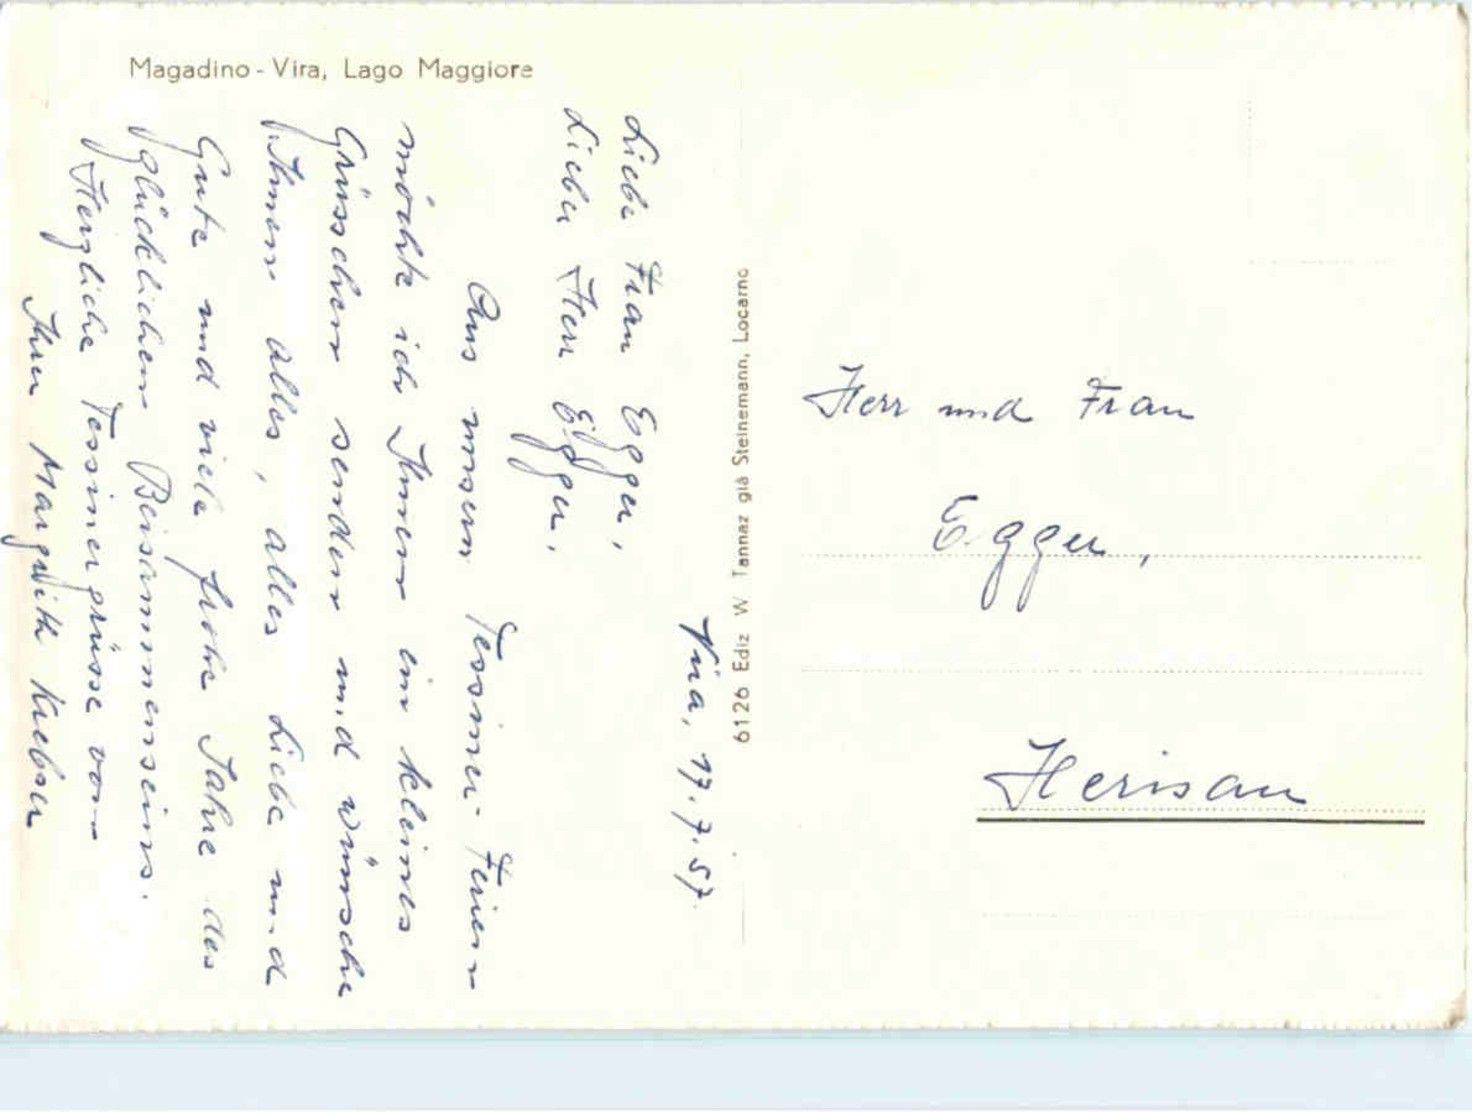 Magadino - Vira, Lago Maggiore
Vira, 17. 7. 57.
Liebe Frau Egger,
Lieber Herr Egger,
Aus unsern Tessiner-Ferien
möchte ich Ihnen ein kleines
Grüsschen senden und wünsche
Ihnen alles, alles Liebe und
Gute und viele frohe Jahre des
glücklichen Beisammenseins.
Herzliche Tessinergrüsse von
Ihrer Margrith
6126 Ediz W. Tannaz già Steinemann, Locarno
Herr und Frau
Egger,
Herisau